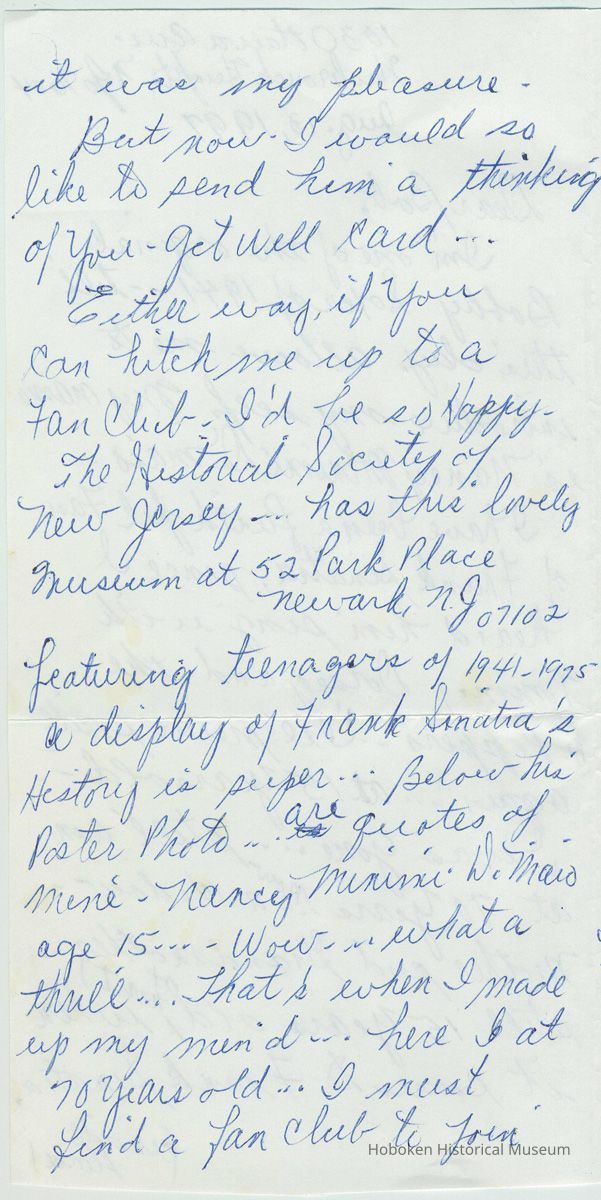 it was my pleasure -
But now - I would so
like to send him a thinking
of You - Get Well Card ...
Either way, if You
can hitch me up to a
Fan Club - I'd be so Happy -
The Historial Society of
New Jersey ... has this lovely
Museum at 52 Park Place
Newark, N.J 07102
featuring teenagers of 1941-1975
a display of Frank Sinatra's
History is super ... Below his
Poster Photo ... are quotes of
mine - Nancy Minimi DiMaio
age 15 ... - Wow - ... what a
thrill .... That's when I made
up my mind ... here I at
70 Years old ... I must
find a fan club to join
Hoboken Historical Museum